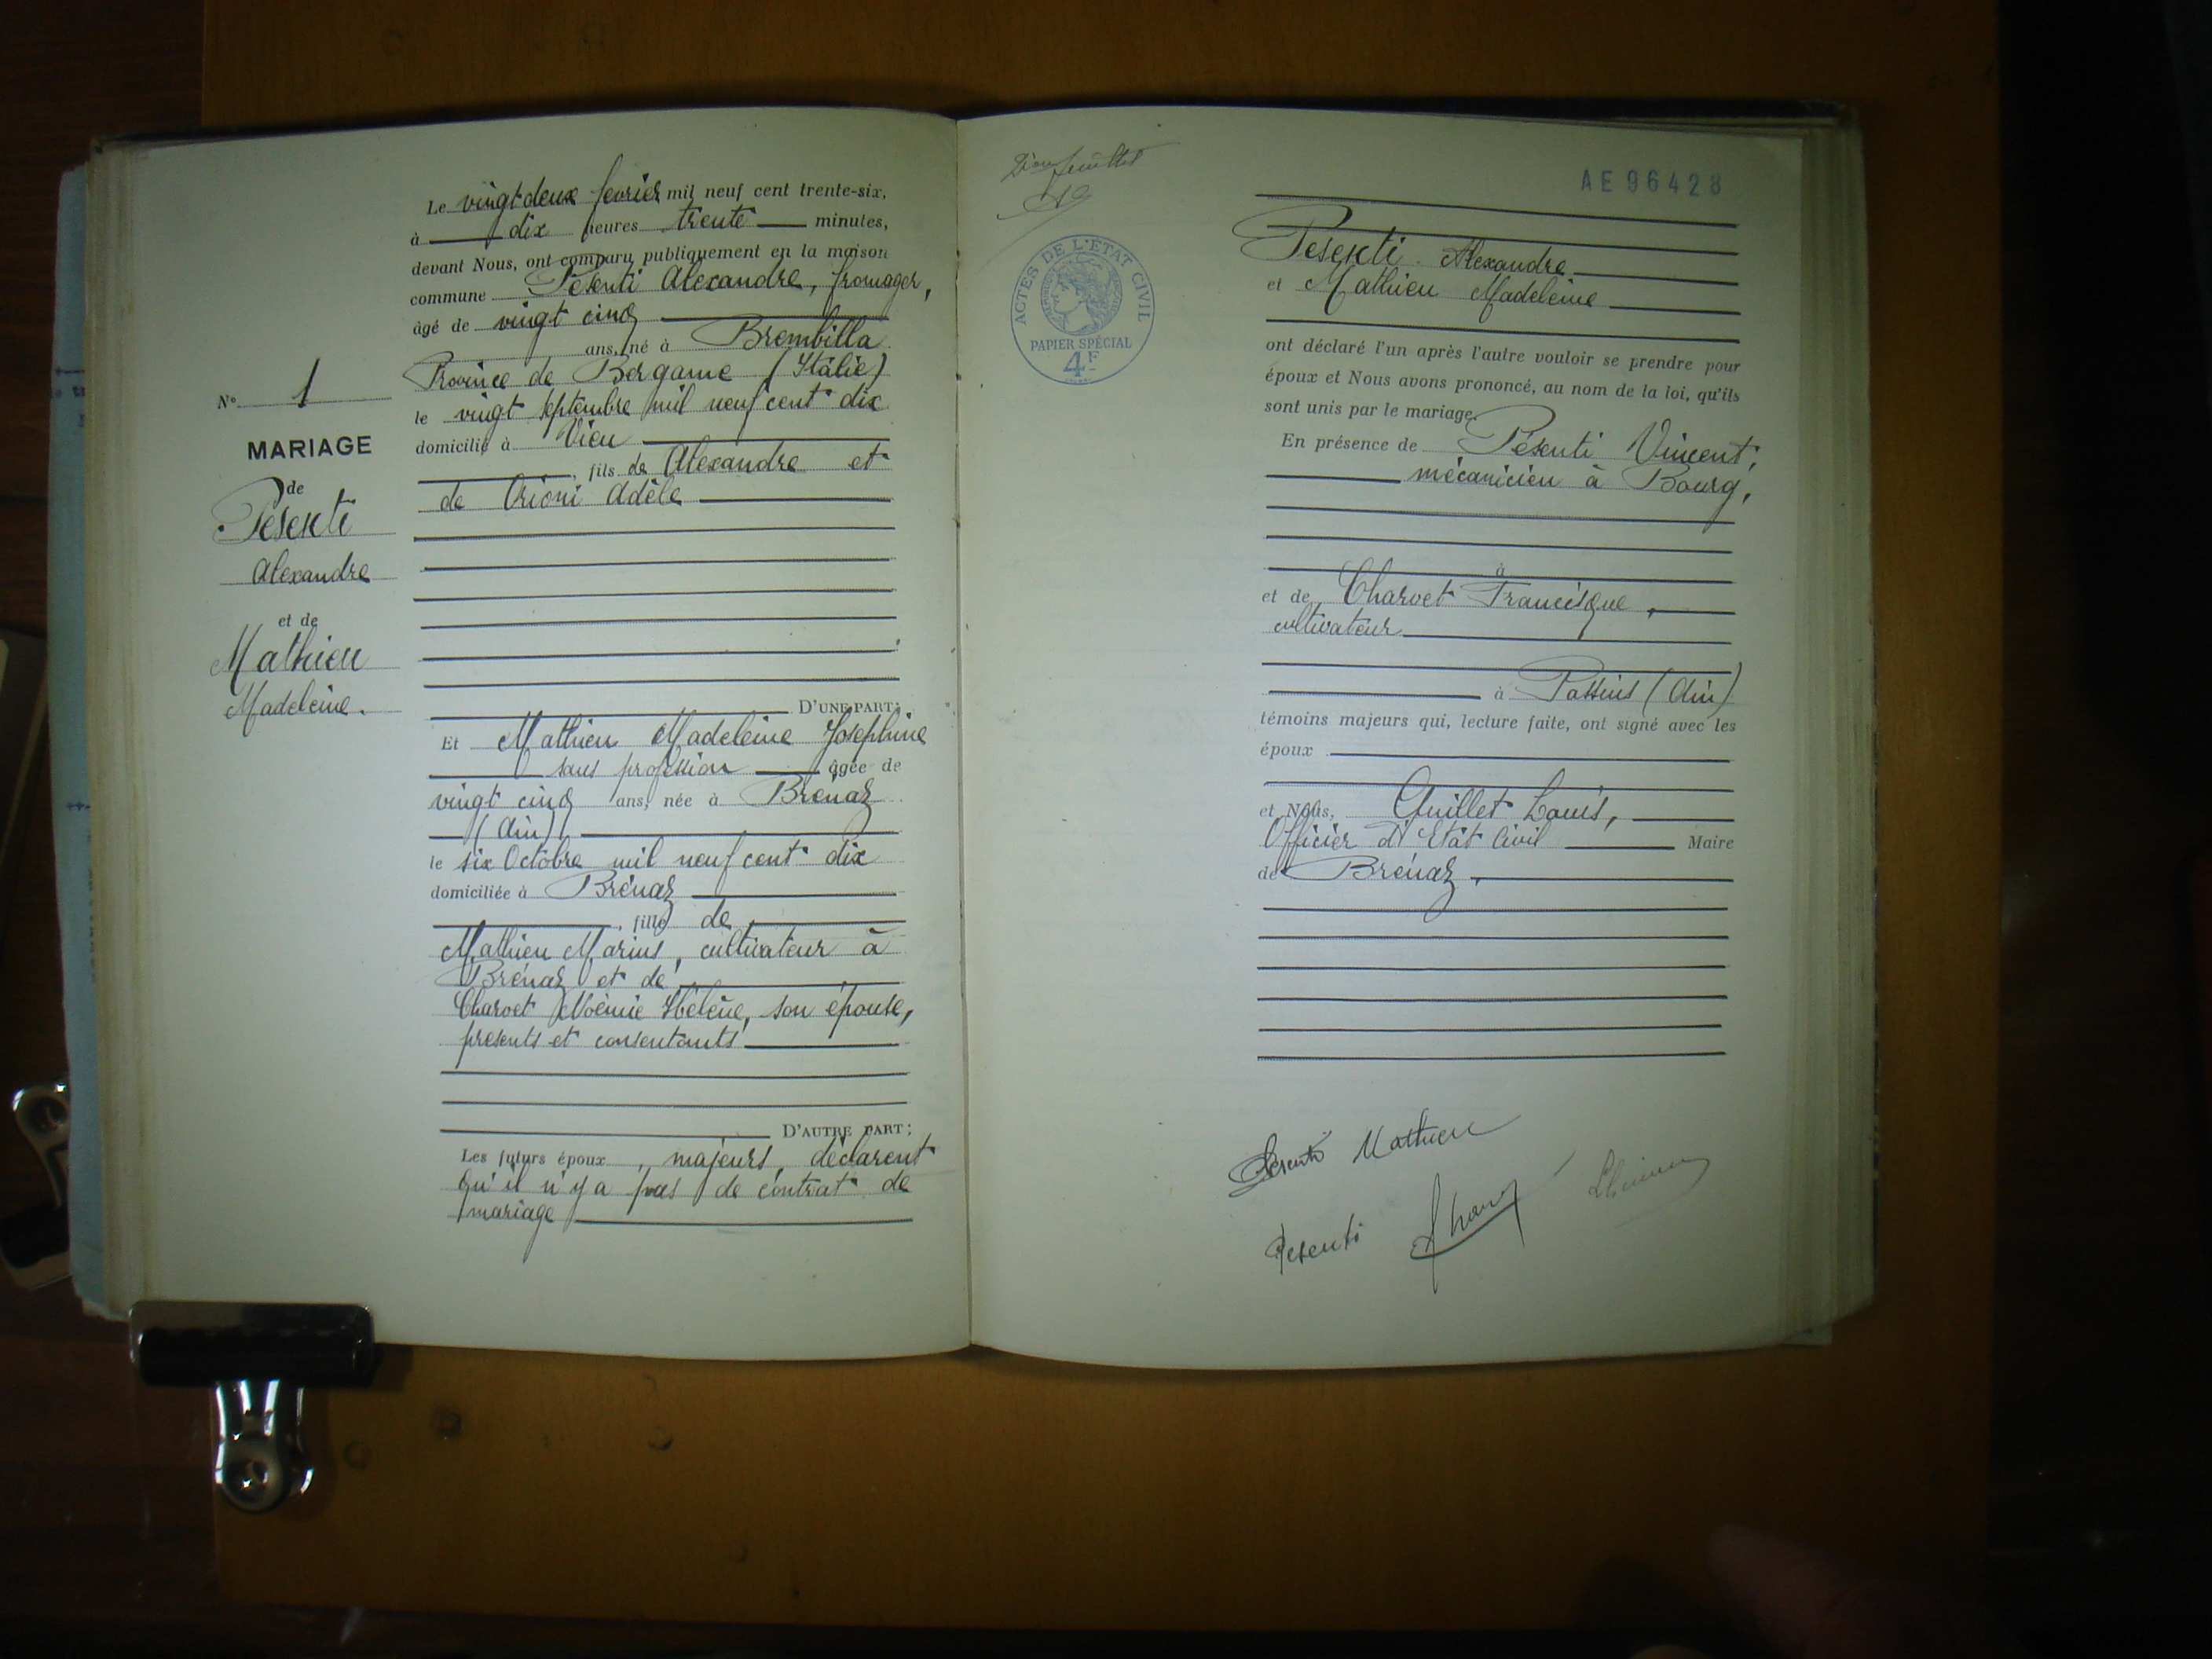 N° 1
MARIAGE
de
Pesenti
Alexandre
et de
Mathieu
Madeleine.
Le vingt deux fevrier mil neuf cent trente-six,
à dix heures trente minutes,
devant Nous, ont comparu publiquement en la maison
commune Pésenti Alexandre, fromager,
âgé de vingt cinq
ans, né à Brembilla
Province de Bergame (Italie)
le vingt septembre mil neuf cent dix
domicilié à Vieu
, fils de Alexandre et
de Orioni Adèle
D'UNE PART;
Et Mathieu Madeleine Josephine
sans profession âgée de
vingt cinq ans, née à Brénaz
(Ain)
le six Octobre mil neuf cent dix
domiciliée à Brénaz
, fille de
Mathieu Marius, cultivateur à
Brénaz et de
Charvet Noémie Hélène, son épouse,
presents et consentants
D'AUTRE PART;
Les futurs époux, majeurs, déclarent
qu'il n'y a pas de contrat de
mariage
feuillet
ACTES DE L'ÉTAT CIVIL
PAPIER SPÉCIAL
4F
AE96428
Pesenti Alexandre
et Mathieu Madeleine
ont déclaré l'un après l'autre vouloir se prendre pour
époux et Nous avons prononcé, au nom de la loi, qu'ils
sont unis par le mariage.
En présence de Pésenti Vincent,
mécanicien à Bourg,
à
et de Charvet Francisque,
cultivateur
à Passins (Ain)
témoins majeurs qui, lecture faite, ont signé avec les
époux
et Nous, Quillet Louis,
Officier d'Etat Civil Maire
de Brénaz.
Pesenti Mathieu
Pesenti